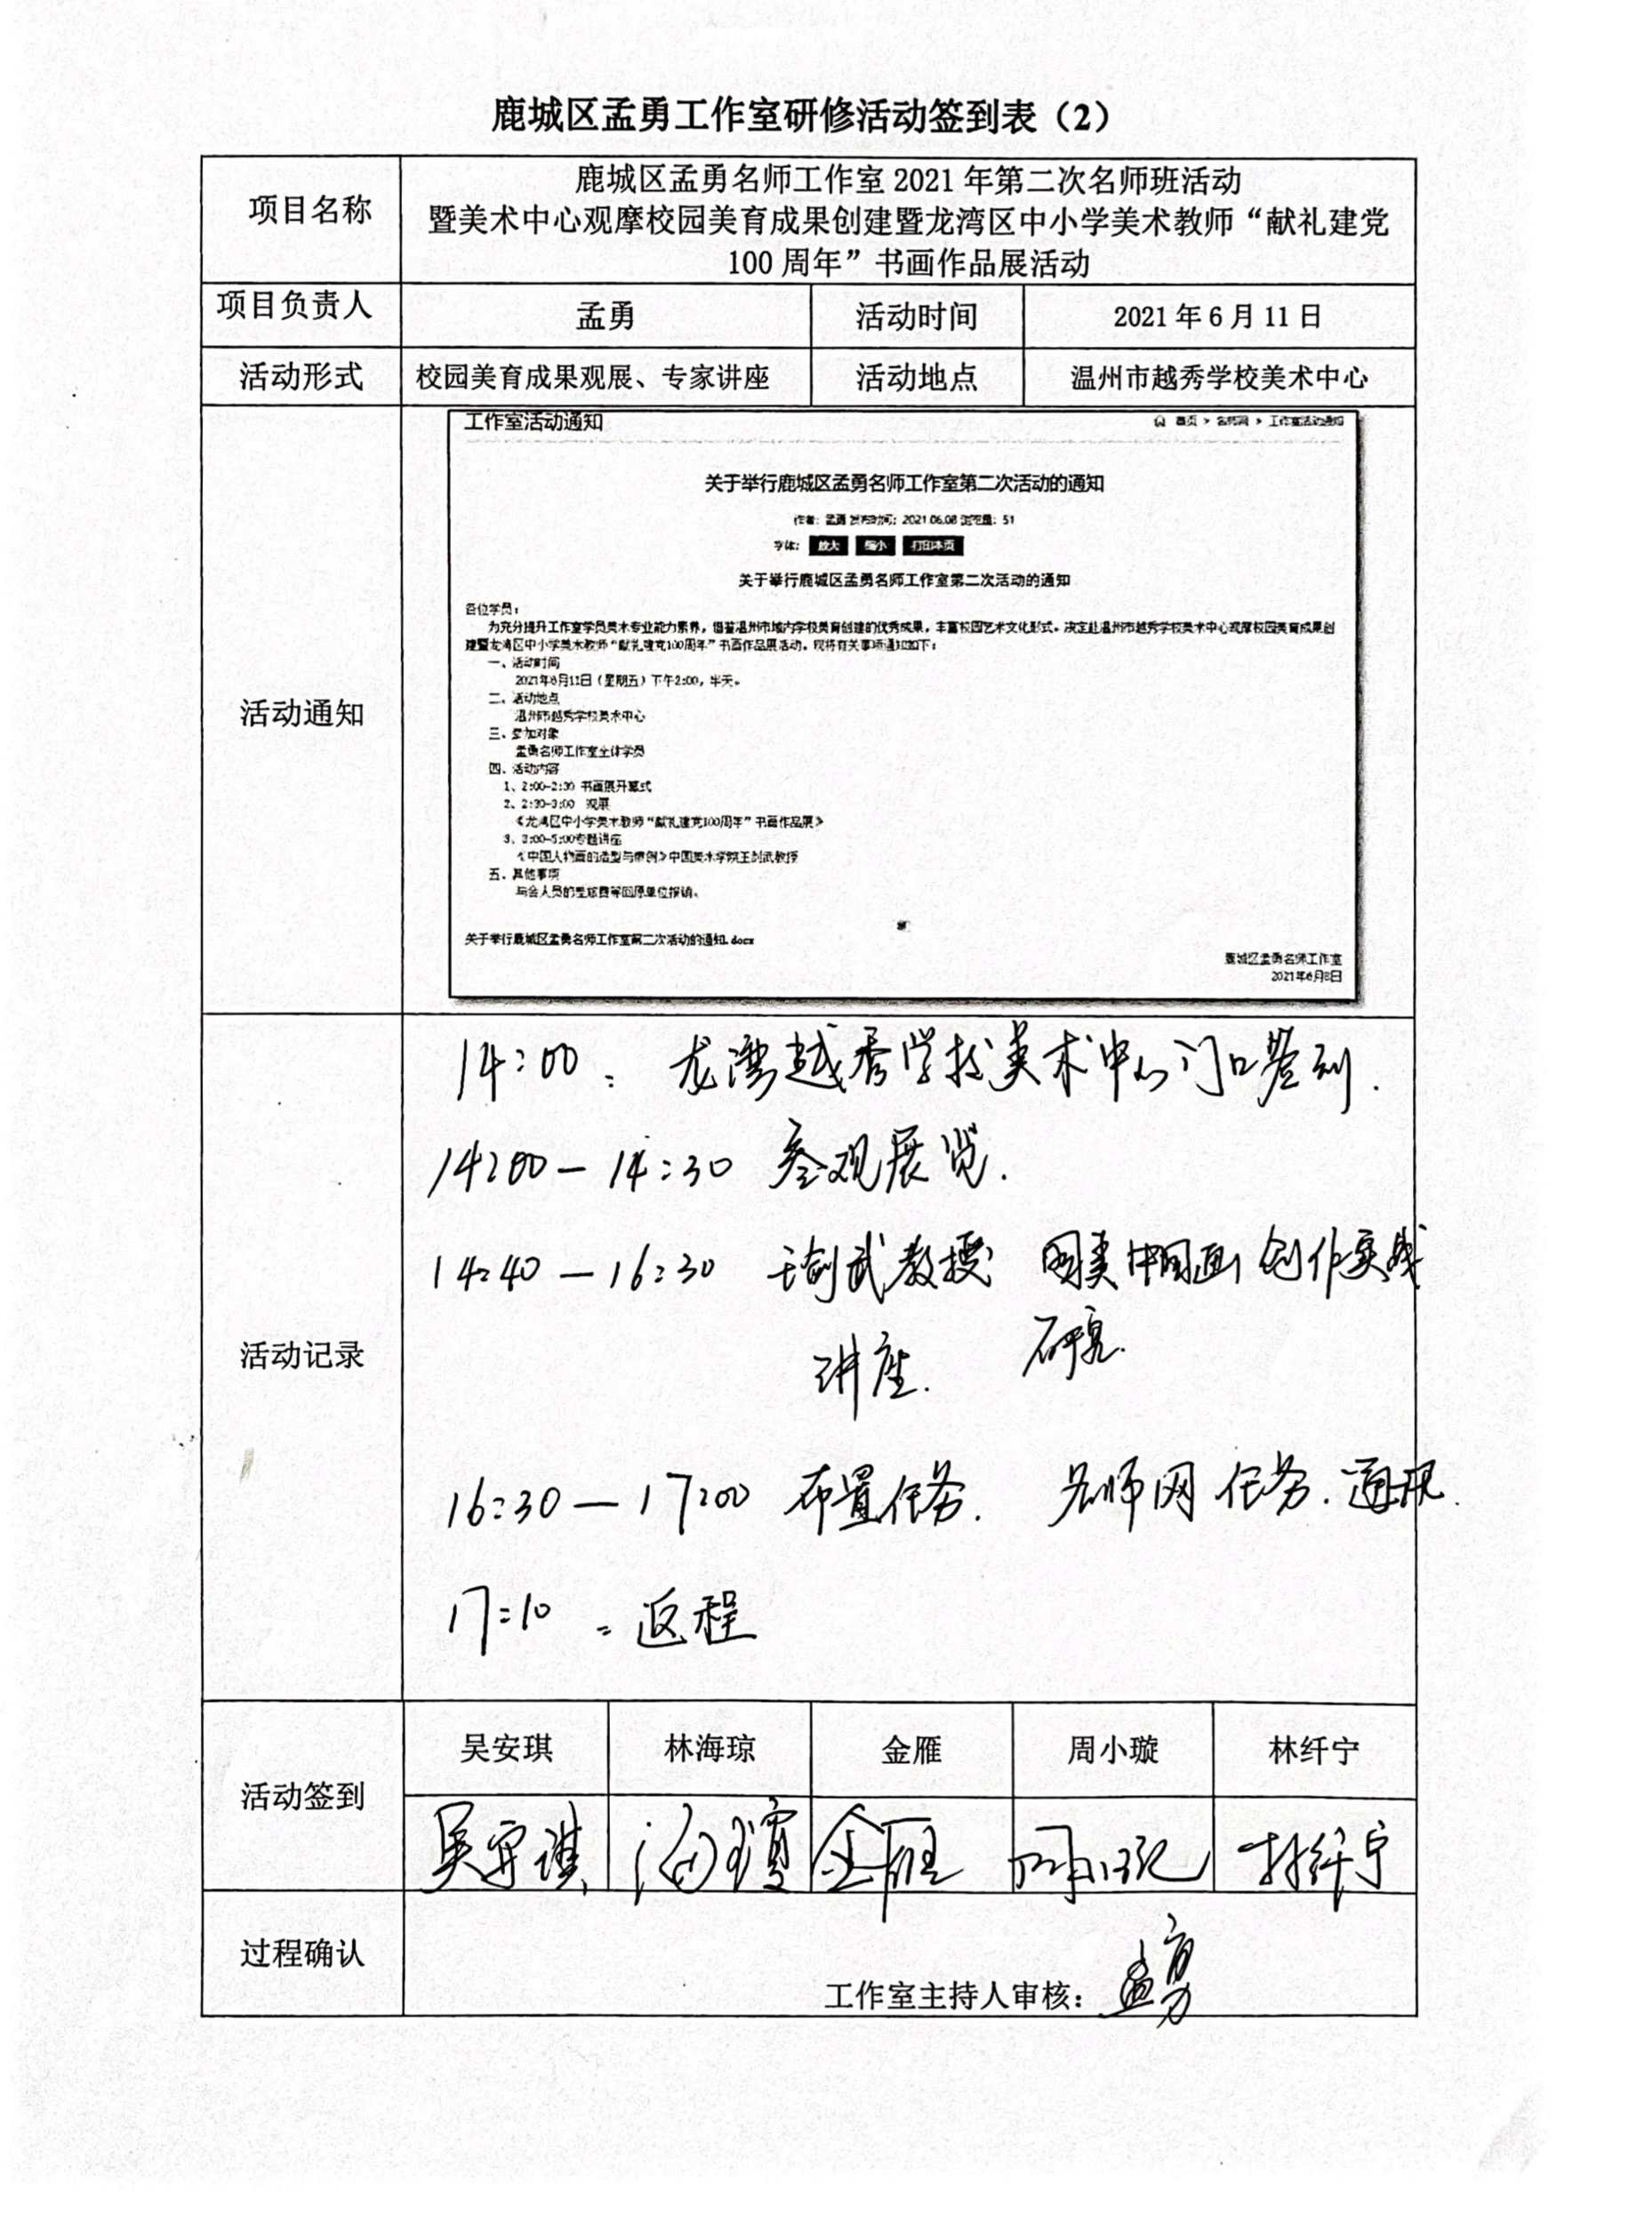 鹿城区孟勇工作室研修活动签到表（2）
项目名称
鹿城区孟勇名师工作室 2021 年第二次名师班活动
暨美术中心观摩校园美育成果创建暨龙湾区中小学美术教师“献礼建党
100 周年”书画作品展活动
项目负责人 孟勇 活动时间 2021 年 6 月 11 日
活动形式 校园美育成果观展、专家讲座 活动地点 温州市越秀学校美术中心
活动通知
工作室活动通知 首页 > 名师网 > 工作室活动通知
关于举行鹿城区孟勇名师工作室第二次活动的通知
作者：孟勇 发布时间：2021.06.08 浏览量：51
字体： 放大 缩小 打印本页
关于举行鹿城区孟勇名师工作室第二次活动的通知
各位学员：
为充分提升工作室学员美术专业能力素养，借鉴温州市域内学校美育创建的优秀成果，丰富校园艺术文化形式。决定赴温州市越秀学校美术中心观摩校园美育成果创
建暨龙湾区中小学美术教师“献礼建党100周年”书画作品展活动。现将有关事项通知如下：
一、活动时间
2021年6月11日（星期五）下午2:00，半天。
二、活动地点
温州市越秀学校美术中心
三、参加对象
孟勇名师工作室全体学员
四、活动内容
1、2:00-2:30 书画展开幕式
2、2:30-3:00 观展
《龙湾区中小学美术教师“献礼建党100周年”书画作品展》
3、3:00-5:00专题讲座
《中国人物画的造型与课例》中国美术学院王剑武教授
五、其他事项
与会人员的差旅费等回原单位报销。
关于举行鹿城区孟勇名师工作室第二次活动的通知.docx
鹿城区孟勇名师工作室
2021年6月8日
活动记录
14:00： 龙湾越秀学校美术中心门口签到.
14:00－14:30 参观展览.
14:40－16:30 王剑武教授 国美中国画创作实践
讲座. 研究.
16:30－17:00 布置任务. 名师网任务.通讯.
17:10：返程
活动签到
吴安琪 林海琼 金雁 周小璇 林纤宁
吴安琪 海琼 金雁 周小璇 林纤宁
过程确认
工作室主持人审核：孟勇